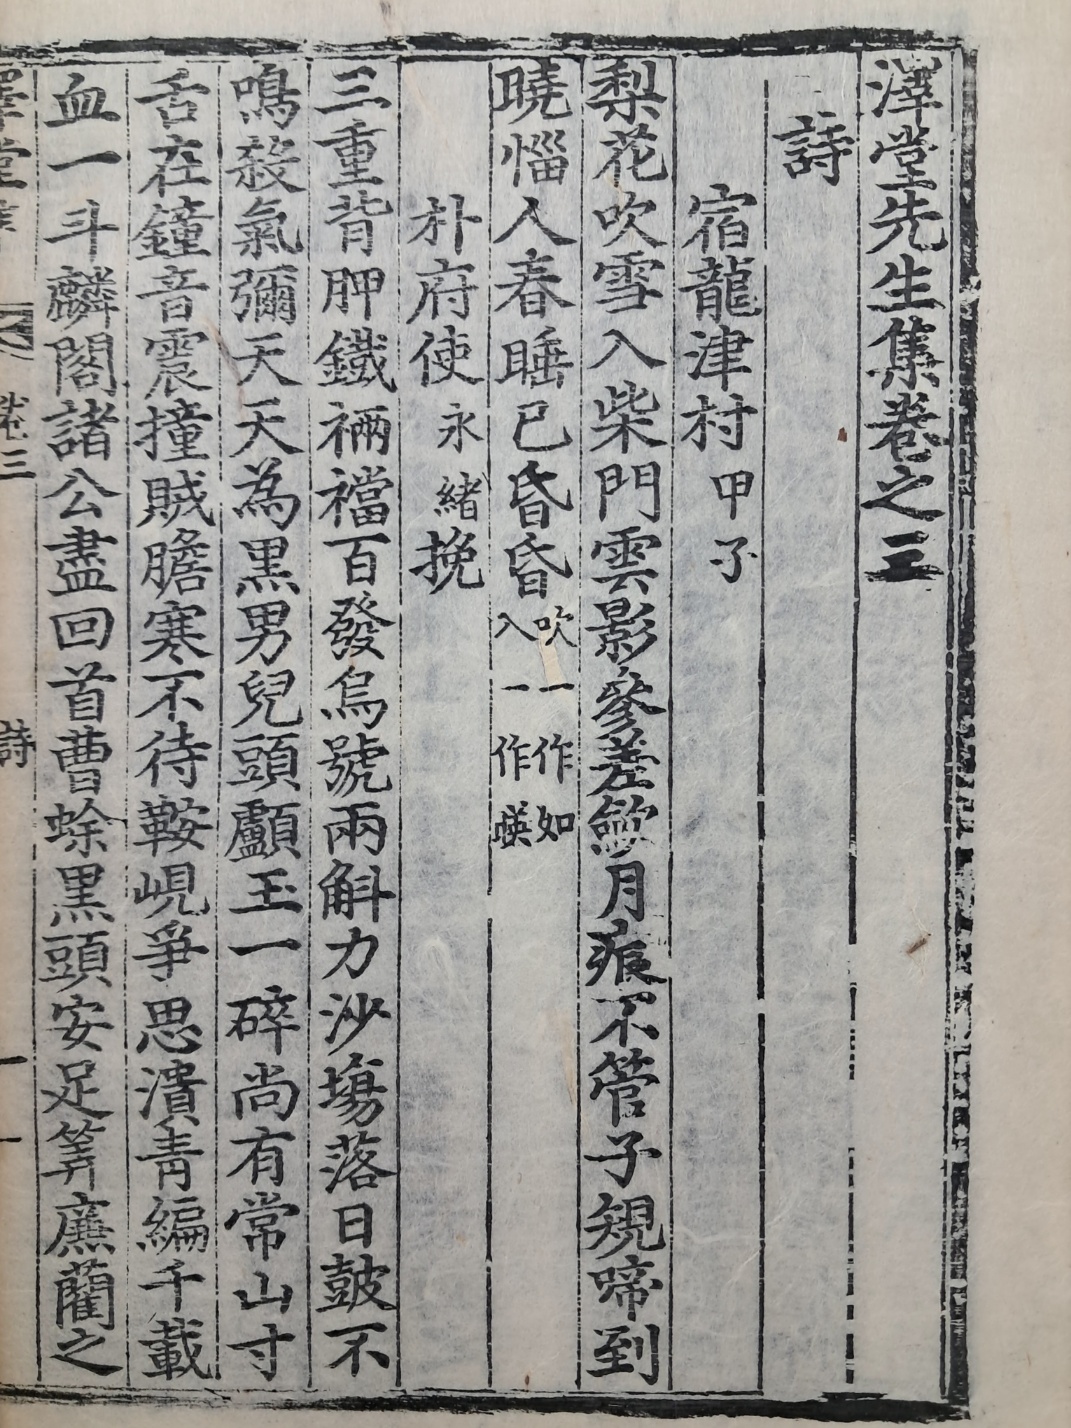 澤堂先生集卷之三
詩
宿龍津村甲子
梨花吹雪入柴門雲影參差籢月痕不管子規啼到
曉惱人春睡已昏昏吹一作如入一作暎
朴府使永緖挽
三重背胛鐵裲襠百發烏號兩斛力沙場落日鼓不
鳴殺氣彌天天為黑男兒頭顱玉一碎尚有常山寸
舌在鐘音震撞賊膽寒不待鞍峴爭思潰靑編千載
血一斗麟閣諸公盡回首曹蜍黑頭安足筭廉藺之
卷三
詩
一